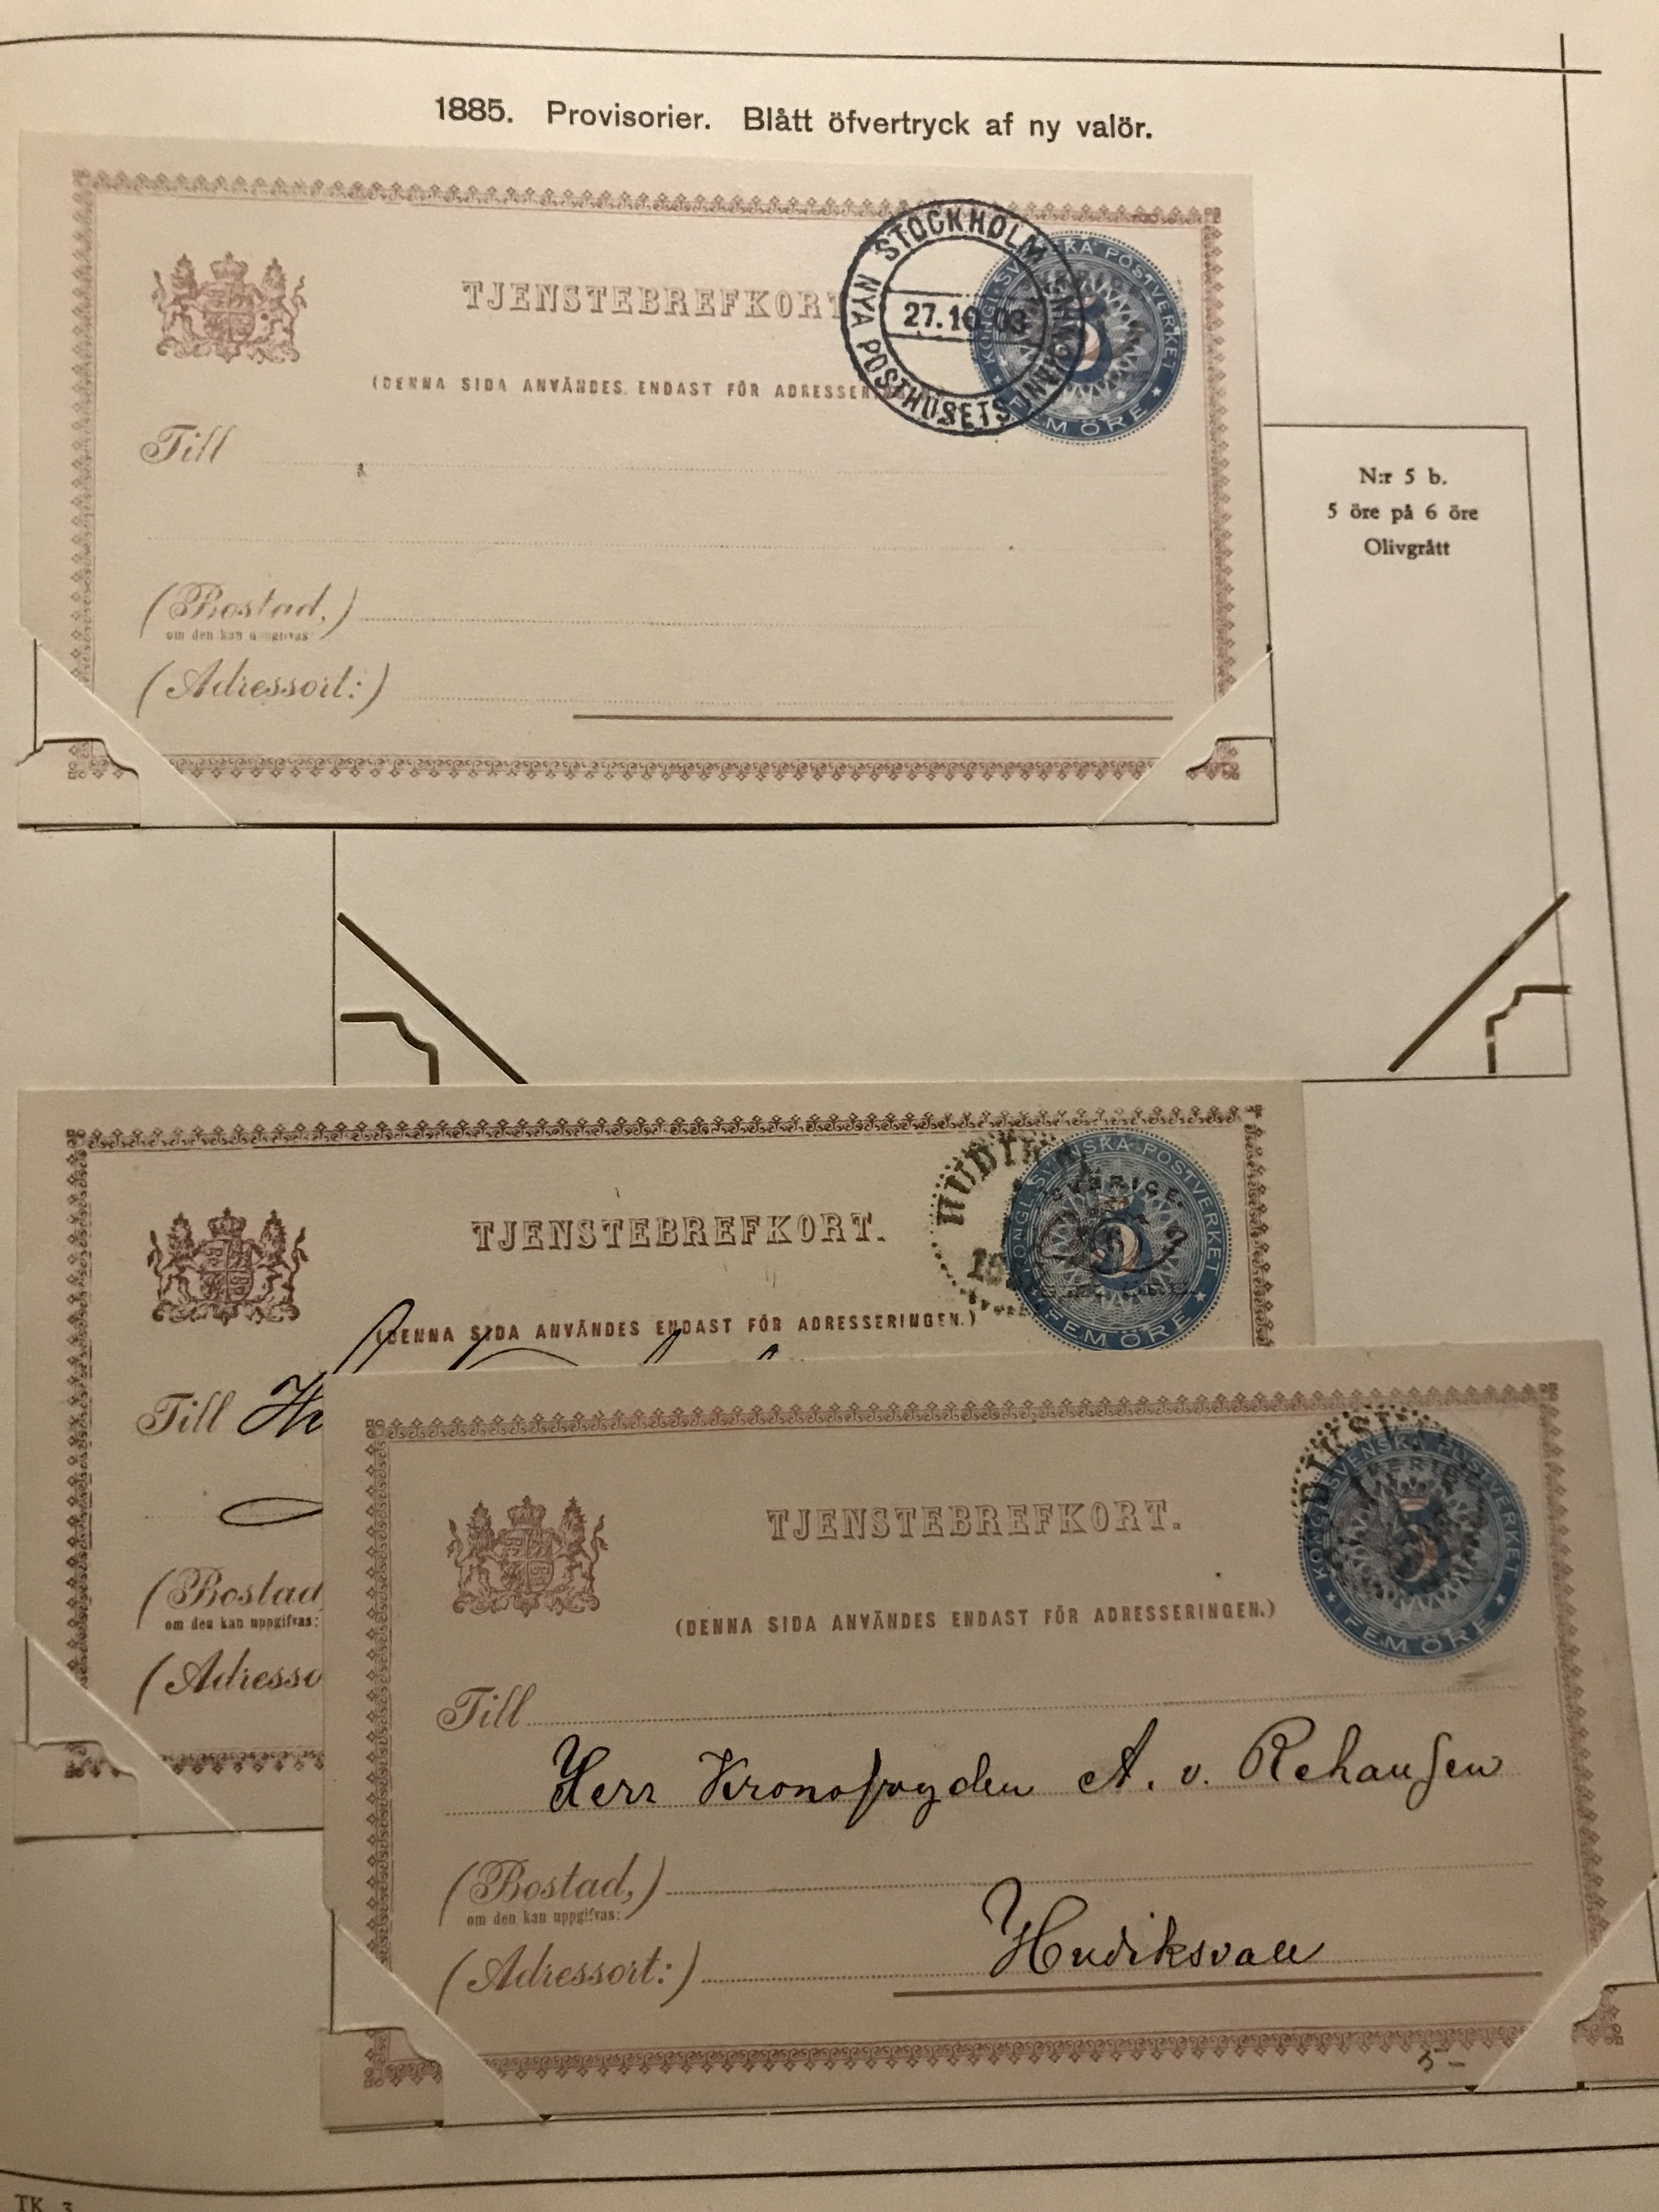 1885. Provisorier. Blått öfvertryck af ny valör.
TJENSTEBREFKORT
STOCKHOLM
NYA POSTHUSETS
27.10
KONGL. SVENSKA POSTVERKET
5
FEM ÖRE
(DENNA SIDA ANVÄNDES ENDAST FÖR ADRESSERIN
Till
(Bostad,)
om den kan uppgifvas
(Adressort:)
N:r 5 b.
5 öre på 6 öre
Olivgrått
TJENSTEBREFKORT.
HUDIK
KONGL. SVENSKA POSTVERKET
SVERIGE
5
FEM ÖRE
(DENNA SIDA ANVÄNDES ENDAST FÖR ADRESSERINGEN.)
Till
(Bostad
om den kan uppgifvas:
(Adresso
TJENSTEBREFKORT.
KONGL. SVENSKA POSTVERKET
5
FEM ÖRE
(DENNA SIDA ANVÄNDES ENDAST FÖR ADRESSERINGEN.)
Till
Herr Kronofogden A. v. Rehausen
(Bostad,)
om den kan uppgifvas:
Hudiksvall
(Adressort:)
5-
TK 3